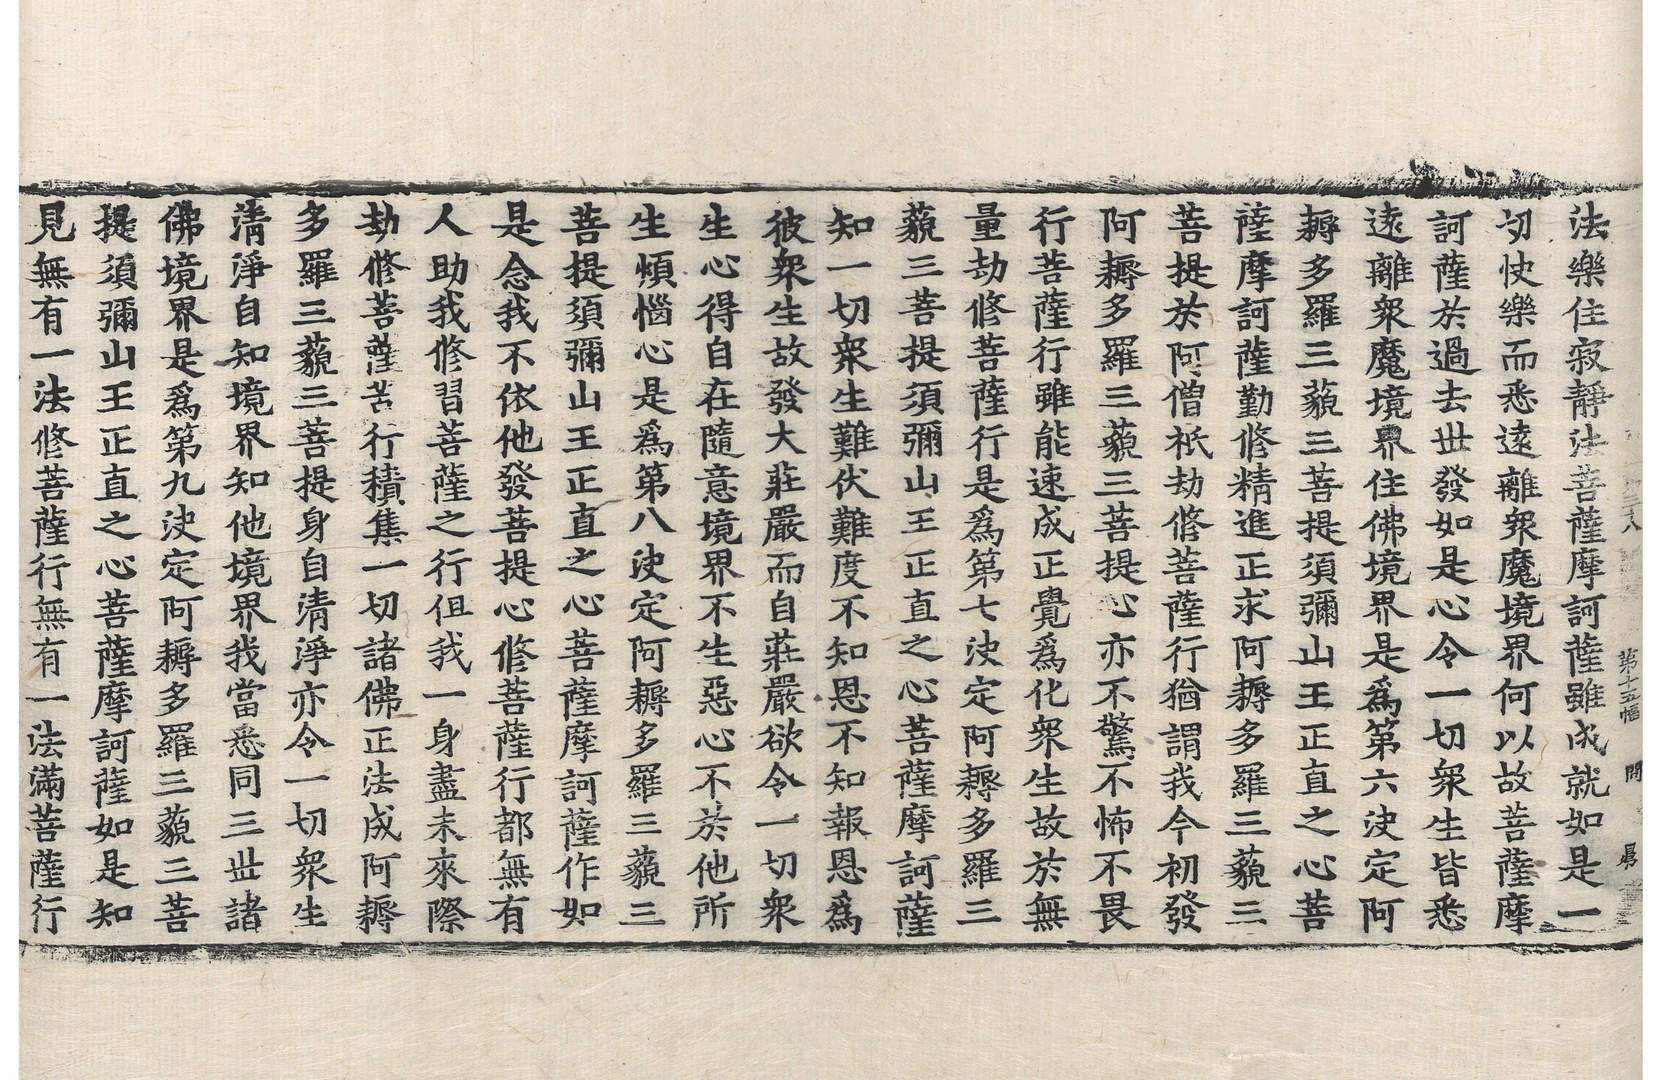 法樂住寂靜法菩薩摩訶薩雖成就如是一
切快樂而悉遠離衆魔境界何以故菩薩摩
訶薩於過去世發如是心令一切衆生皆悉
遠離衆魔境界住佛境界是爲第六決定阿
耨多羅三藐三菩提須彌山王正直之心菩
薩摩訶薩勤修精進正求阿耨多羅三藐三
菩提於阿僧祇劫修菩薩行猶謂我今初發
阿耨多羅三藐三菩提心亦不驚不怖不畏
行菩薩行雖能速成正覺爲化衆生故於無
量劫修菩薩行是爲第七決定阿耨多羅三
藐三菩提須彌山王正直之心菩薩摩訶薩
知一切衆生難伏難度不知恩不知報恩爲
彼衆生故發大莊嚴而自莊嚴欲令一切衆
生心得自在隨意境界不生惡心不於他所
生煩惱心是爲第八決定阿耨多羅三藐三
菩提須彌山王正直之心菩薩摩訶薩作如
是念我不依他發菩提心修菩薩行都無有
人助我修習菩薩之行但我一身盡未來際
劫修菩薩苦行積集一切諸佛正法成阿耨
多羅三藐三菩提身自清淨亦令一切衆生
清淨自知境界知他境界我當悉同三世諸
佛境界是爲第九決定阿耨多羅三藐三菩
提須彌山王正直之心菩薩摩訶薩如是知
見無有一法修菩薩行無有一法滿菩薩行